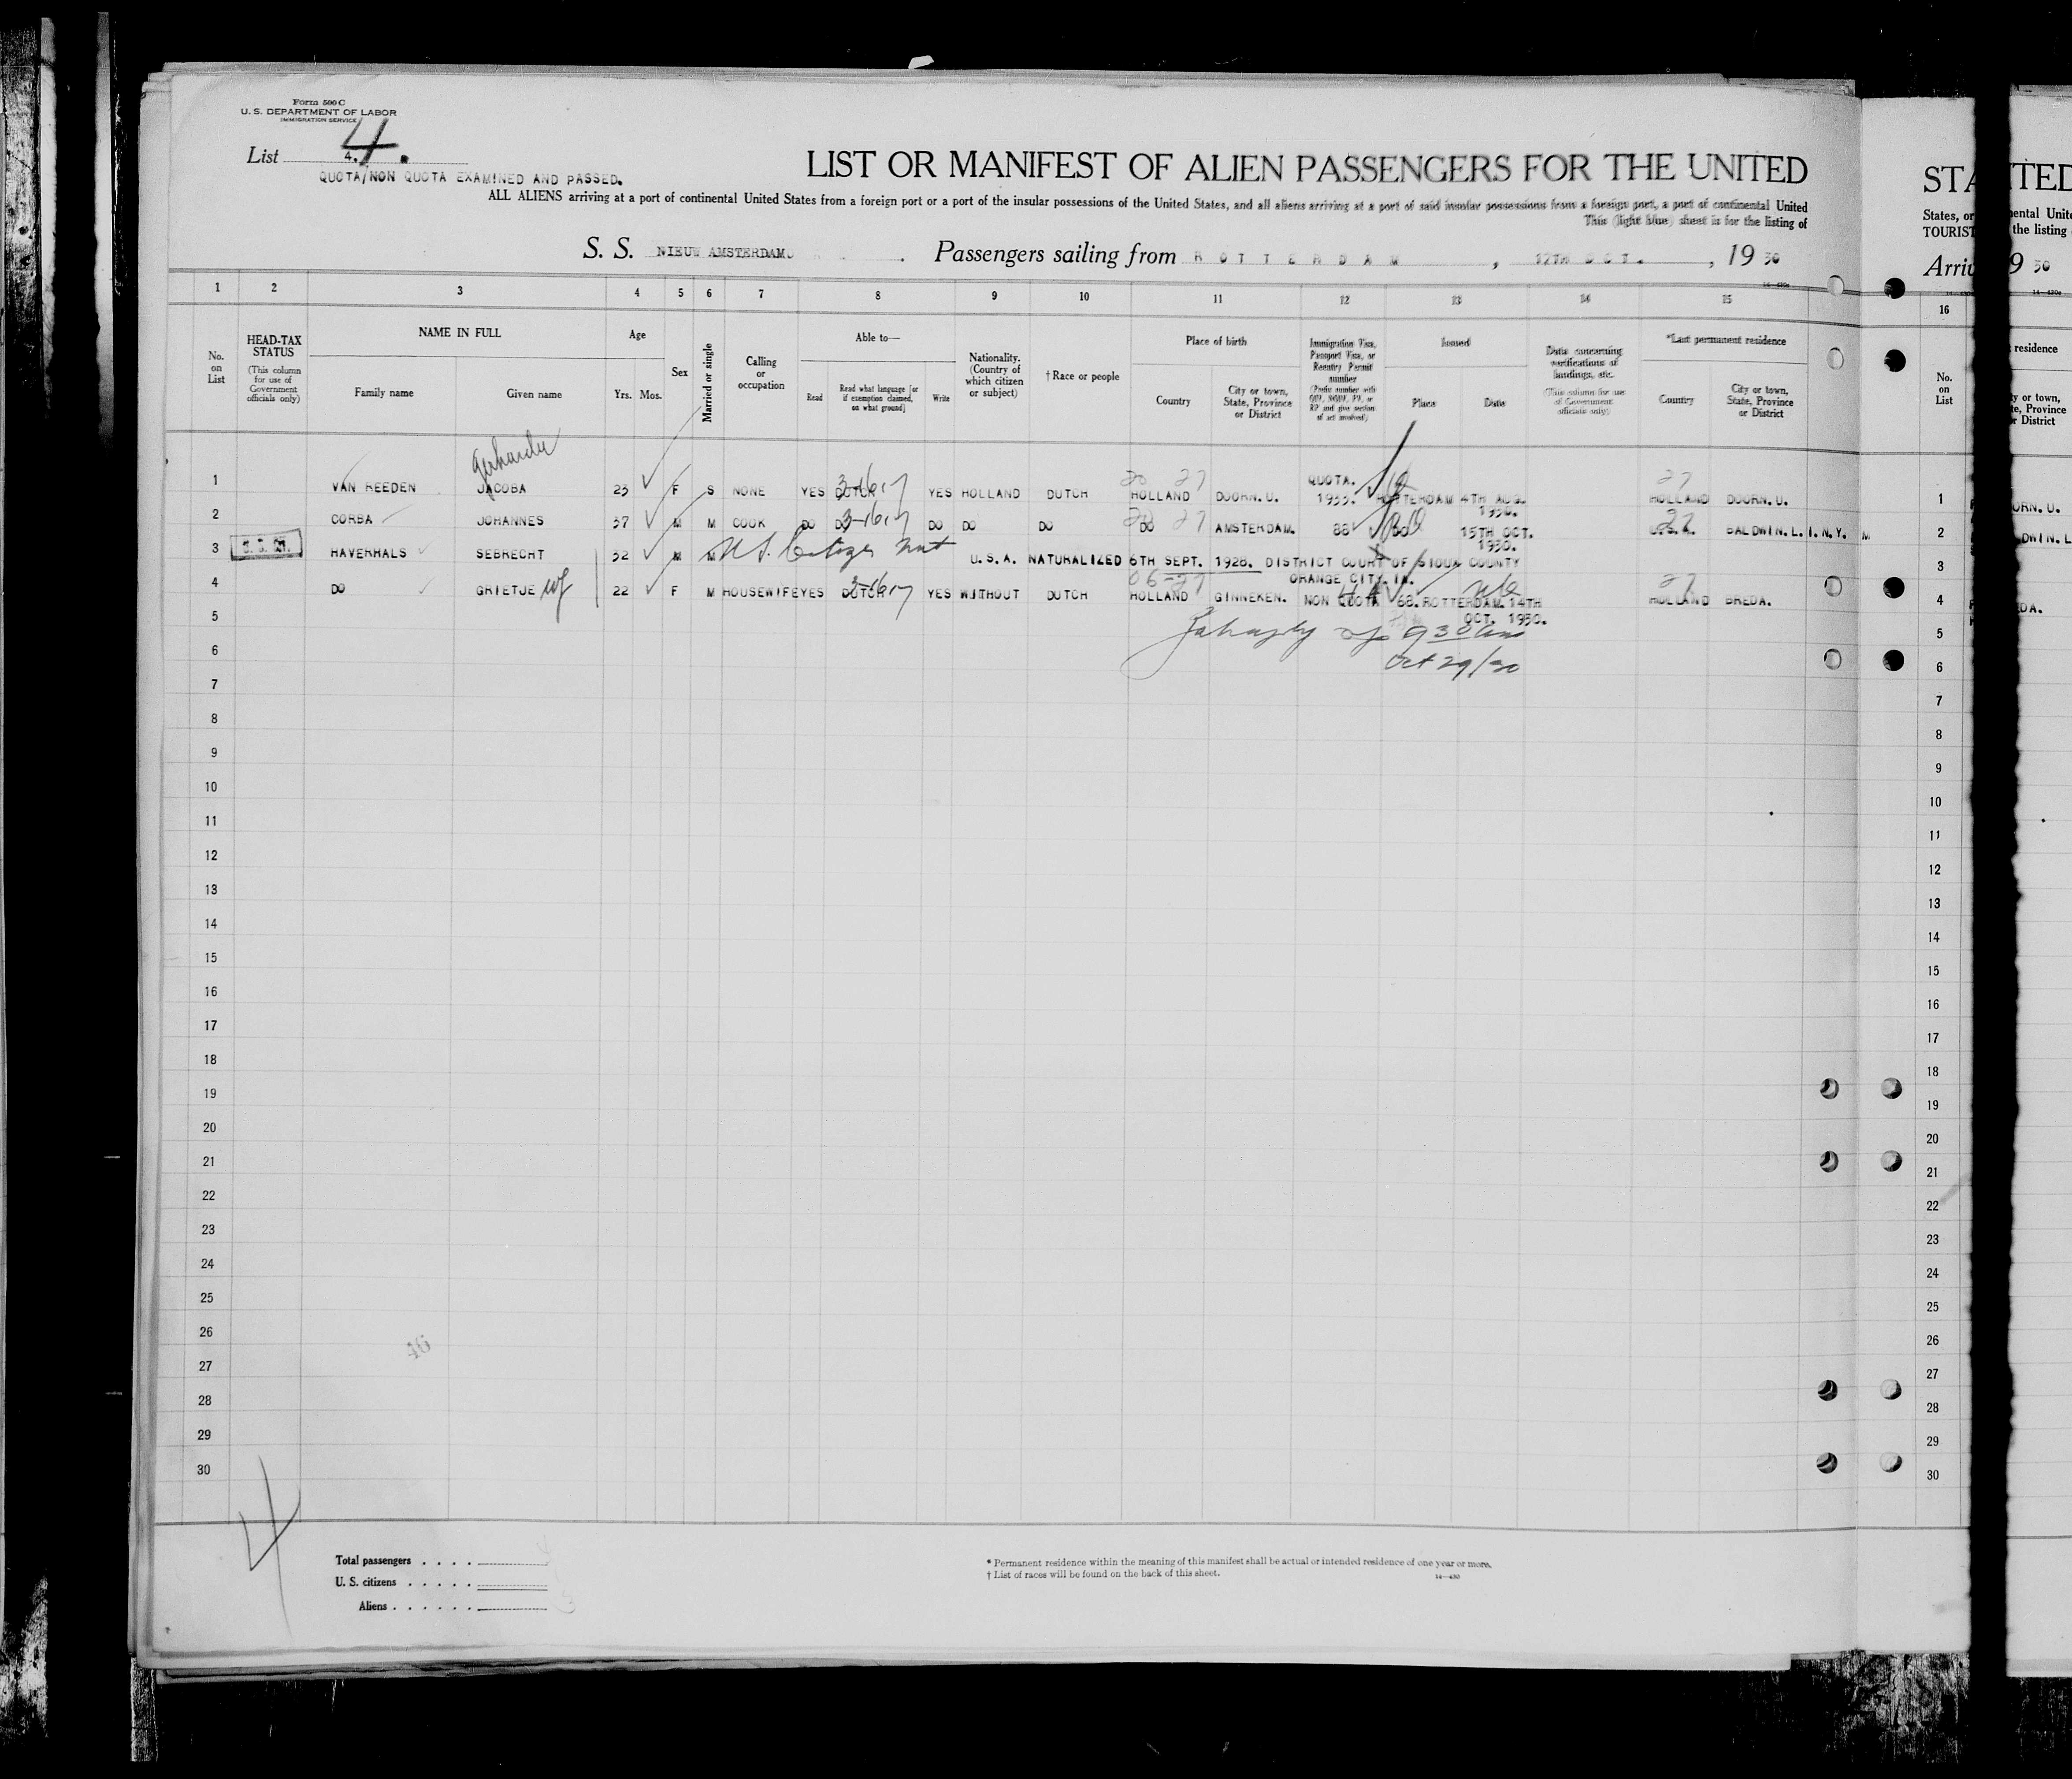 Form 500 C
U. S. DEPARTMENT OF LABOR
IMMIGRATION SERVICE
List 4. 4.
QUOTA/NON QUOTA EXAMINED AND PASSED.
LIST OR MANIFEST OF ALIEN PASSENGERS FOR THE UNITED
ALL ALIENS arriving at a port of continental United States from a foreign port or a port of the insular possessions of the United States, and all aliens arriving at a port of said insular possessions from a foreign port, a port of continental United
This (light blue) sheet is for the listing of
S. S. NIEUW AMSTERDAM. Passengers sailing from ROTTERDAM, 12TH OCT., 19 30
1 2 3 4 5 6 7 8 9 10 11 12 13 14 15
No. on List
HEAD-TAX STATUS (This column for use of Government officials only)
NAME IN FULL Family name Given name
Age Yrs. Mos.
Sex
Married or single
Calling or occupation
Able to— Read Read what language [or if exemption claimed, on what ground] Write
Nationality. (Country of which citizen or subject)
† Race or people
Place of birth Country City or town, State, Province or District
Immigration Visa, Passport Visa, or Reentry Permit number
Issued Place Date
Data concerning verifications of landings, etc. (This column for use of Government officials only)
*Last permanent residence Country City or town, State, Province or District
Gerharda
20 27 QUOTA. 27
1 VAN REEDEN JACOBA 23 F S NONE YES DUTCH YES HOLLAND DUTCH HOLLAND DOORN. U. 1933. ROTTERDAM 4TH AUG. 1930. HOLLAND DOORN. U.
2 CORBA JOHANNES 37 M M COOK DO DO DO DO DO DO AMSTERDAM. 88 DO 15TH OCT. 1930. U.S.A. BALDWIN. L. I. N. Y.
3 HAVERHALS SEBRECHT 32 M M U.S. Citizen Nat U.S.A. NATURALIZED 6TH SEPT. 1928. DISTRICT COURT OF SIOUX COUNTY
ORANGE CITY. IA.
4 DO GRIETJE wf 22 F M HOUSEWIFE YES DUTCH YES WITHOUT DUTCH HOLLAND GINNEKEN. NON QUOTA 68. ROTTERDAM. 14TH OCT. 1930. HOLLAND BREDA.
5
6 Oct 29/30
7
8
9
10
11
12
13
14
15
16
17
18
19
20
21
22
23
24
25
26
27
28
29
30
4
Total passengers
U. S. citizens
Aliens
* Permanent residence within the meaning of this manifest shall be actual or intended residence of one year or more.
† List of races will be found on the back of this sheet.
14—430
STA
States, or
TOURIST
Arriv
16
No. on List
1
2
3
4
5
6
7
8
9
10
11
12
13
14
15
16
17
18
19
20
21
22
23
24
25
26
27
28
29
30
ITED
the listing
9 30
residence
or District
ORN. U.
DWIN. L
DA.